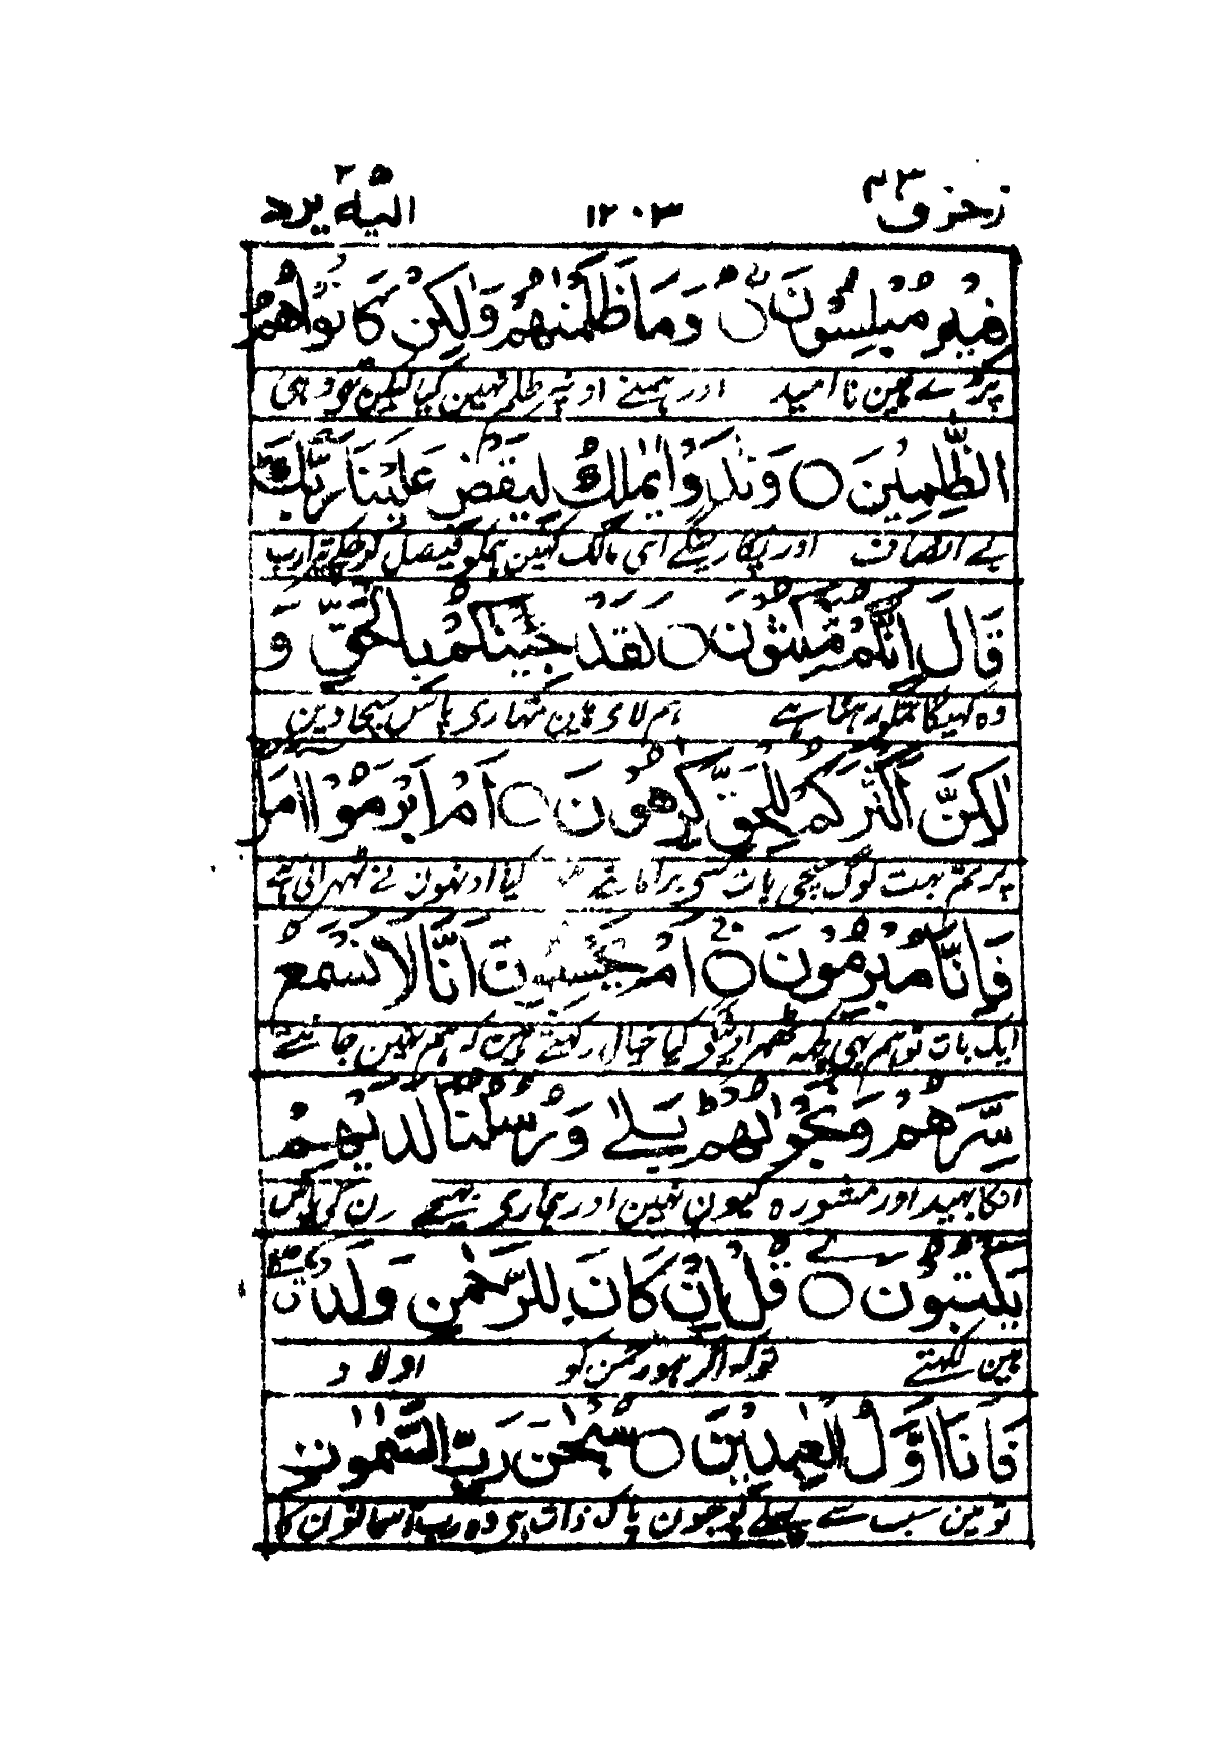 زخرف ۴۳
۱۲۰۳
الیه یرد ۲۵
فِيْهِ مُبْلِسُوْنَ ۝ وَمَا ظَلَمْنٰهُمْ وَلٰكِنْ كَانُوْا هُمُ
پڑے ہین نا امید اور ہمنے اونپہ ظلم نہین کیا لیکن تہے وہی
الظّٰلِمِيْنَ ۝ وَنَادَوْا يٰمٰلِكُ لِيَقْضِ عَلَيْنَا رَبُّكَ
بے انصاف اور پکارینگے ای مالک کہین ہمکو فیصل کرچکے تیرا رب
قَالَ اِنَّكُمْ مّٰكِثُوْنَ ۝ لَقَدْ جِئْنٰكُمْ بِالْحَقِّ وَ
وہ کہیگا تمکو رہنا ہے ہم لای ہین تمہاری پاس سچا دین
لٰكِنَّ اَكْثَرَكُمْ لِلْحَقِّ كٰرِهُوْنَ ۝ اَمْ اَبْرَمُوْا اَمْرًا
پر تم بہت لوگ سچی بات سی برا مانتے کیا اونہون نے ٹہرائی ہے
فَاِنَّا مُبْرِمُوْنَ ۝ اَمْ يَحْسَبُوْنَ اَنَّا لَا نَسْمَعُ
ایک بات تو ہم بہی کچہ ٹھہراوینگے کیا خیال رکہتے ہین کہ ہم نہین جانتے
سِرَّهُمْ وَنَجْوٰىهُمْ بَلٰى وَرُسُلُنَا لَدَيْهِمْ
انکا بہید اور مشورہ کیون نہین اور ہماری بہیجے انکی پاس
يَكْتُبُوْنَ ۝ قُلْ اِنْ كَانَ لِلرَّحْمٰنِ وَلَدٌ
ہین لکہتے تو کہ اگر ہو رحمن کو اولاد
فَاَنَا اَوَّلُ الْعٰبِدِيْنَ ۝ سُبْحٰنَ رَبِّ السَّمٰوٰتِ
تو مین سب سے پہلے پوجون پاک ذات ہی وہ رب آسمانون کا